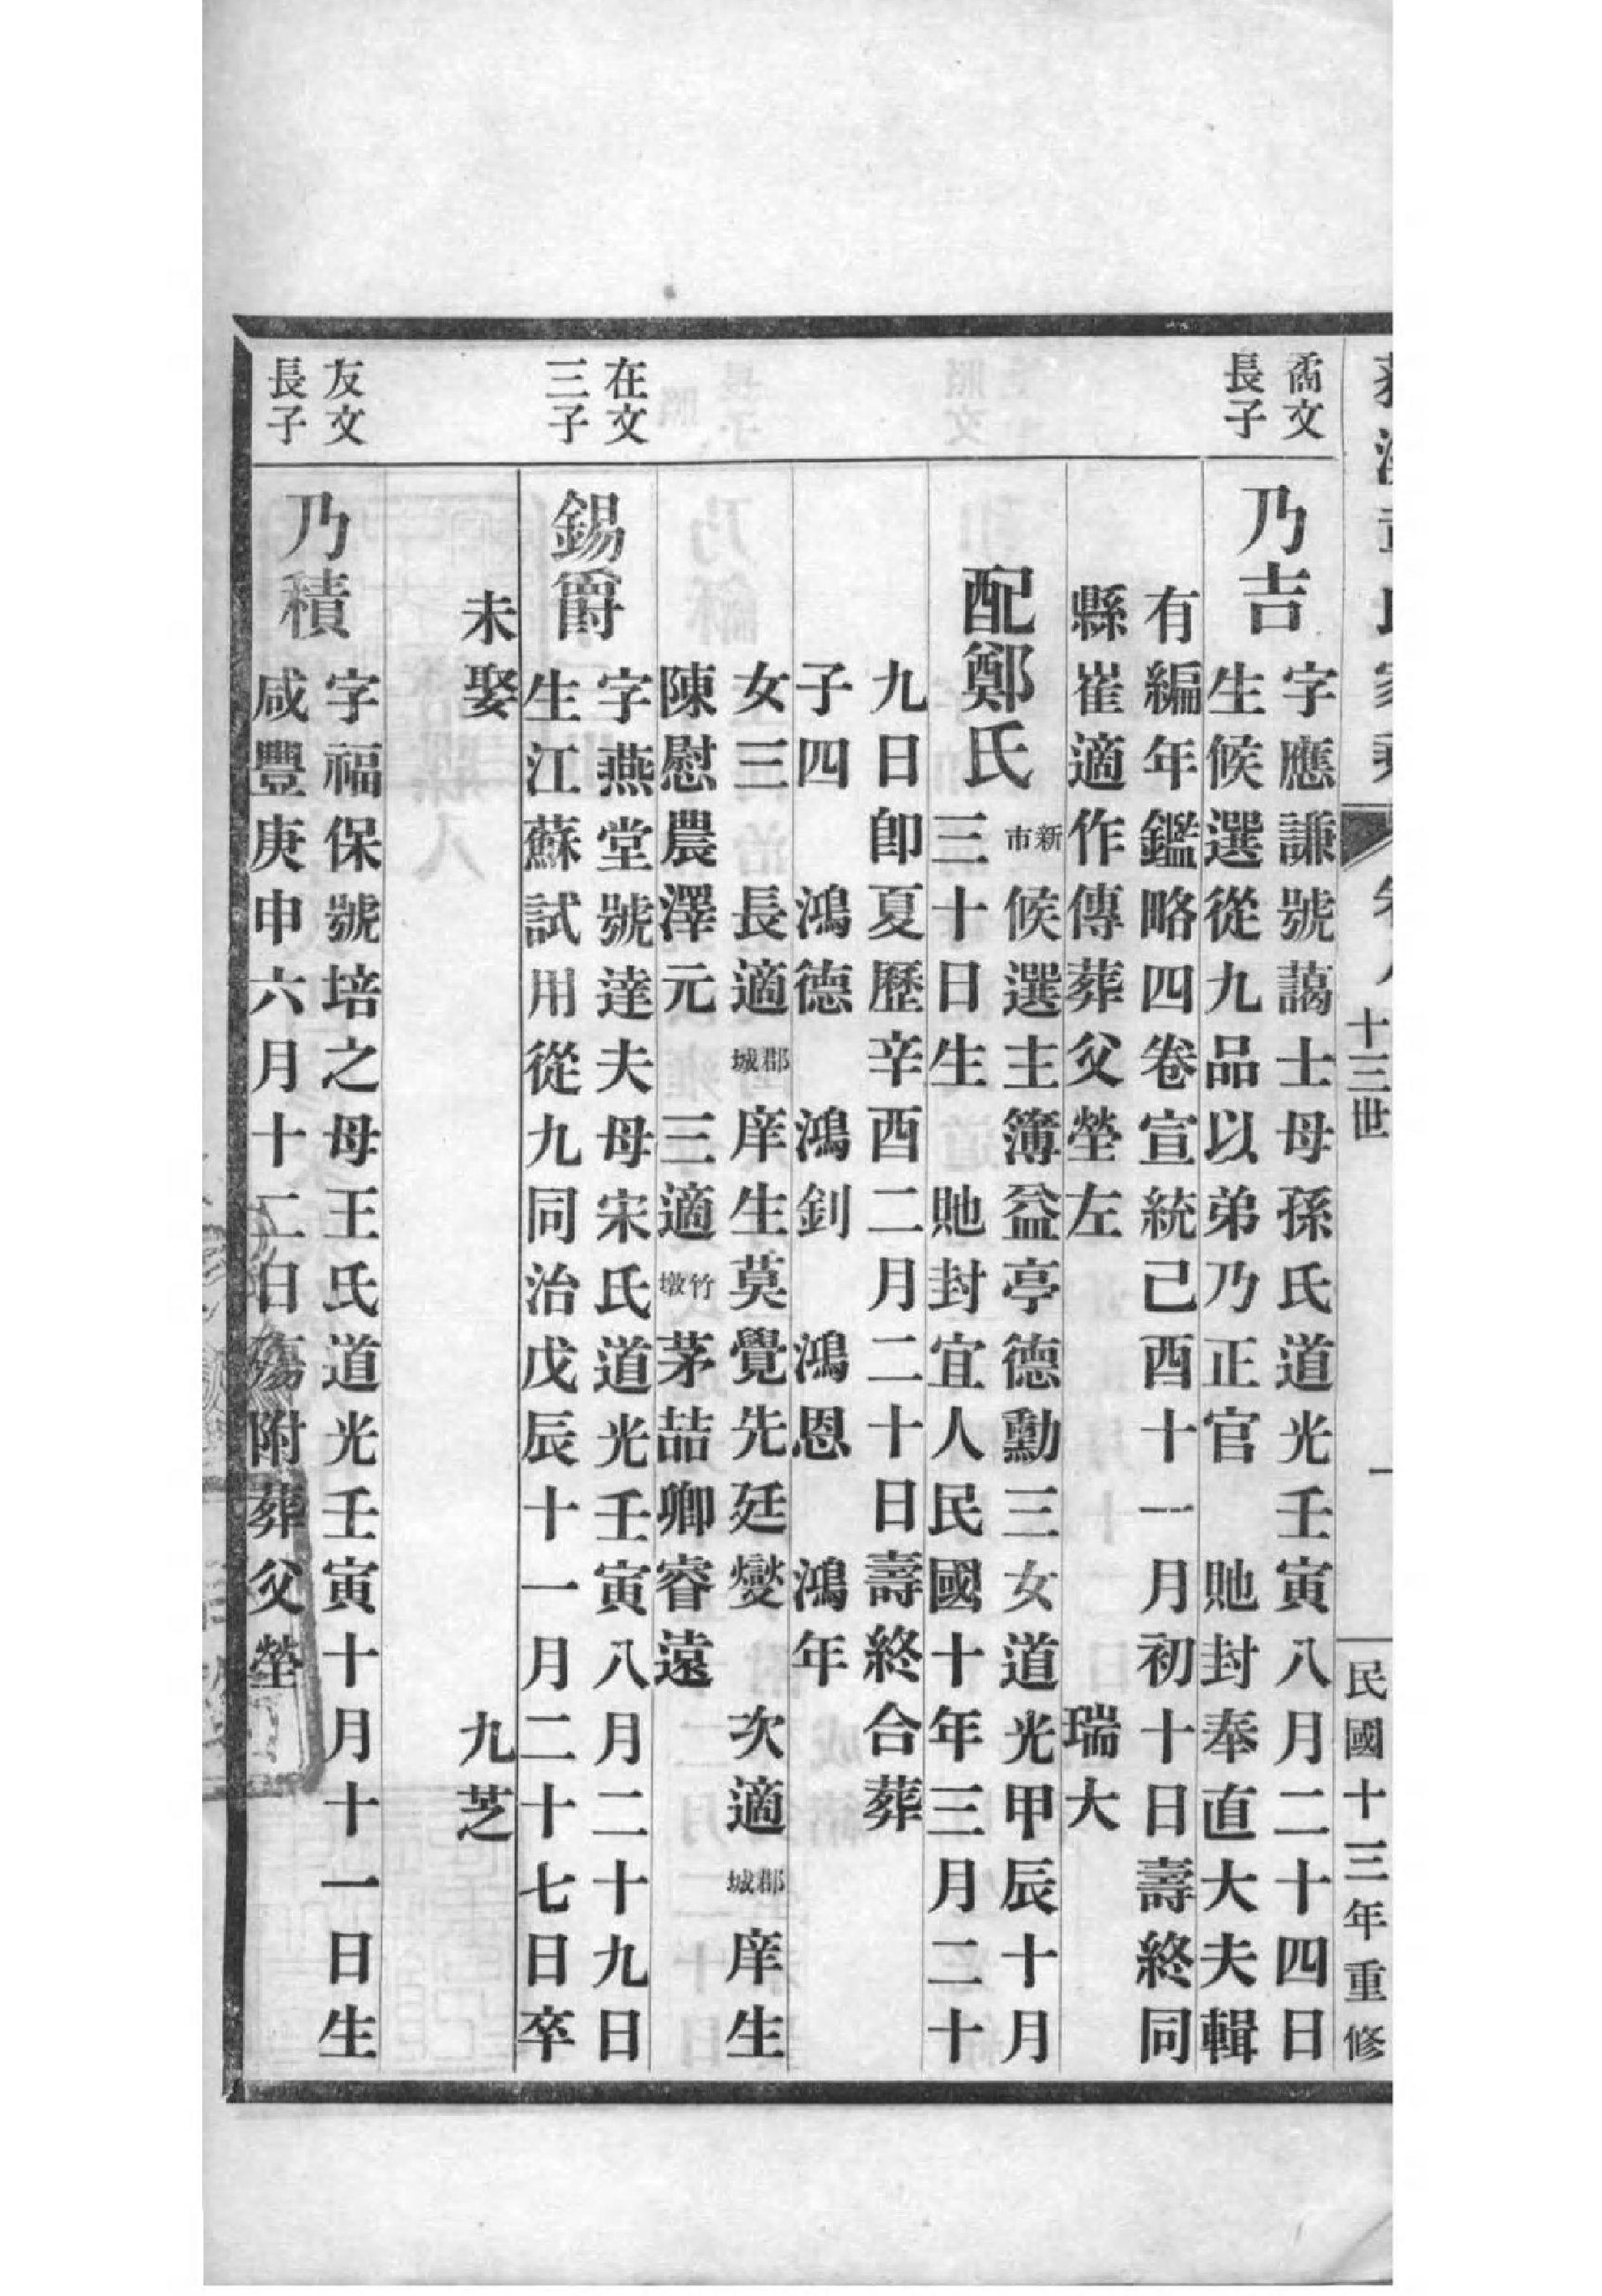 家乘
十三世
一
民國十三年重修
矞文
長子
乃吉
字應謙號藹士母孫氏道光壬寅八月二十四日
生候選從九品以弟乃正官 貤封奉直大夫輯
有編年鑑略四卷宣統己酉十一月初十日壽終同
縣崔適作傳葬父塋左 瑞大
配鄭氏
新市
候選主簿益亭德勳三女道光甲辰十月
三十日生 貤封宜人民國十年三月二十
九日卽夏歷辛酉二月二十日壽終合葬
子四 鴻德 鴻釗 鴻恩 鴻年
女三 長適郡城庠生莫覺先廷燮 次適郡城庠生
陳慰農澤元 三適竹墩茅喆卿睿遠
在文
三子
錫爵
字燕堂號達夫母宋氏道光壬寅八月二十九日
生江蘇試用從九同治戊辰十一月二十七日卒
未娶 九芝
友文
長子
乃積
字福保號培之母王氏道光壬寅十月十一日生
咸豐庚申六月十二日殤附葬父塋